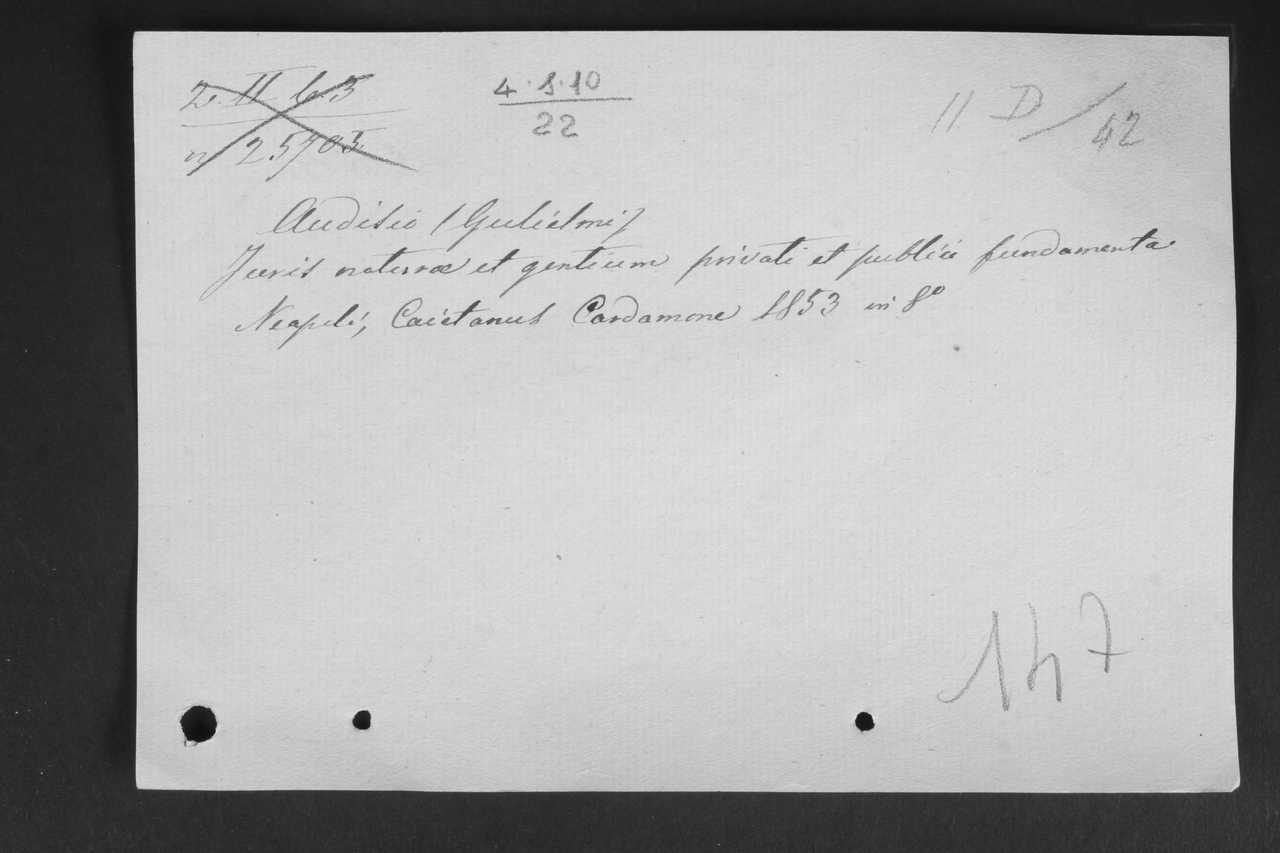 2. II. 6. 3
n 25703
4.1.10
22
11. D/42
Audisio (Gulielmi)
Juris naturæ et gentium privati et publici fundamenta
Neapoli, Caietanus Cardamone 1853 in 8º
147